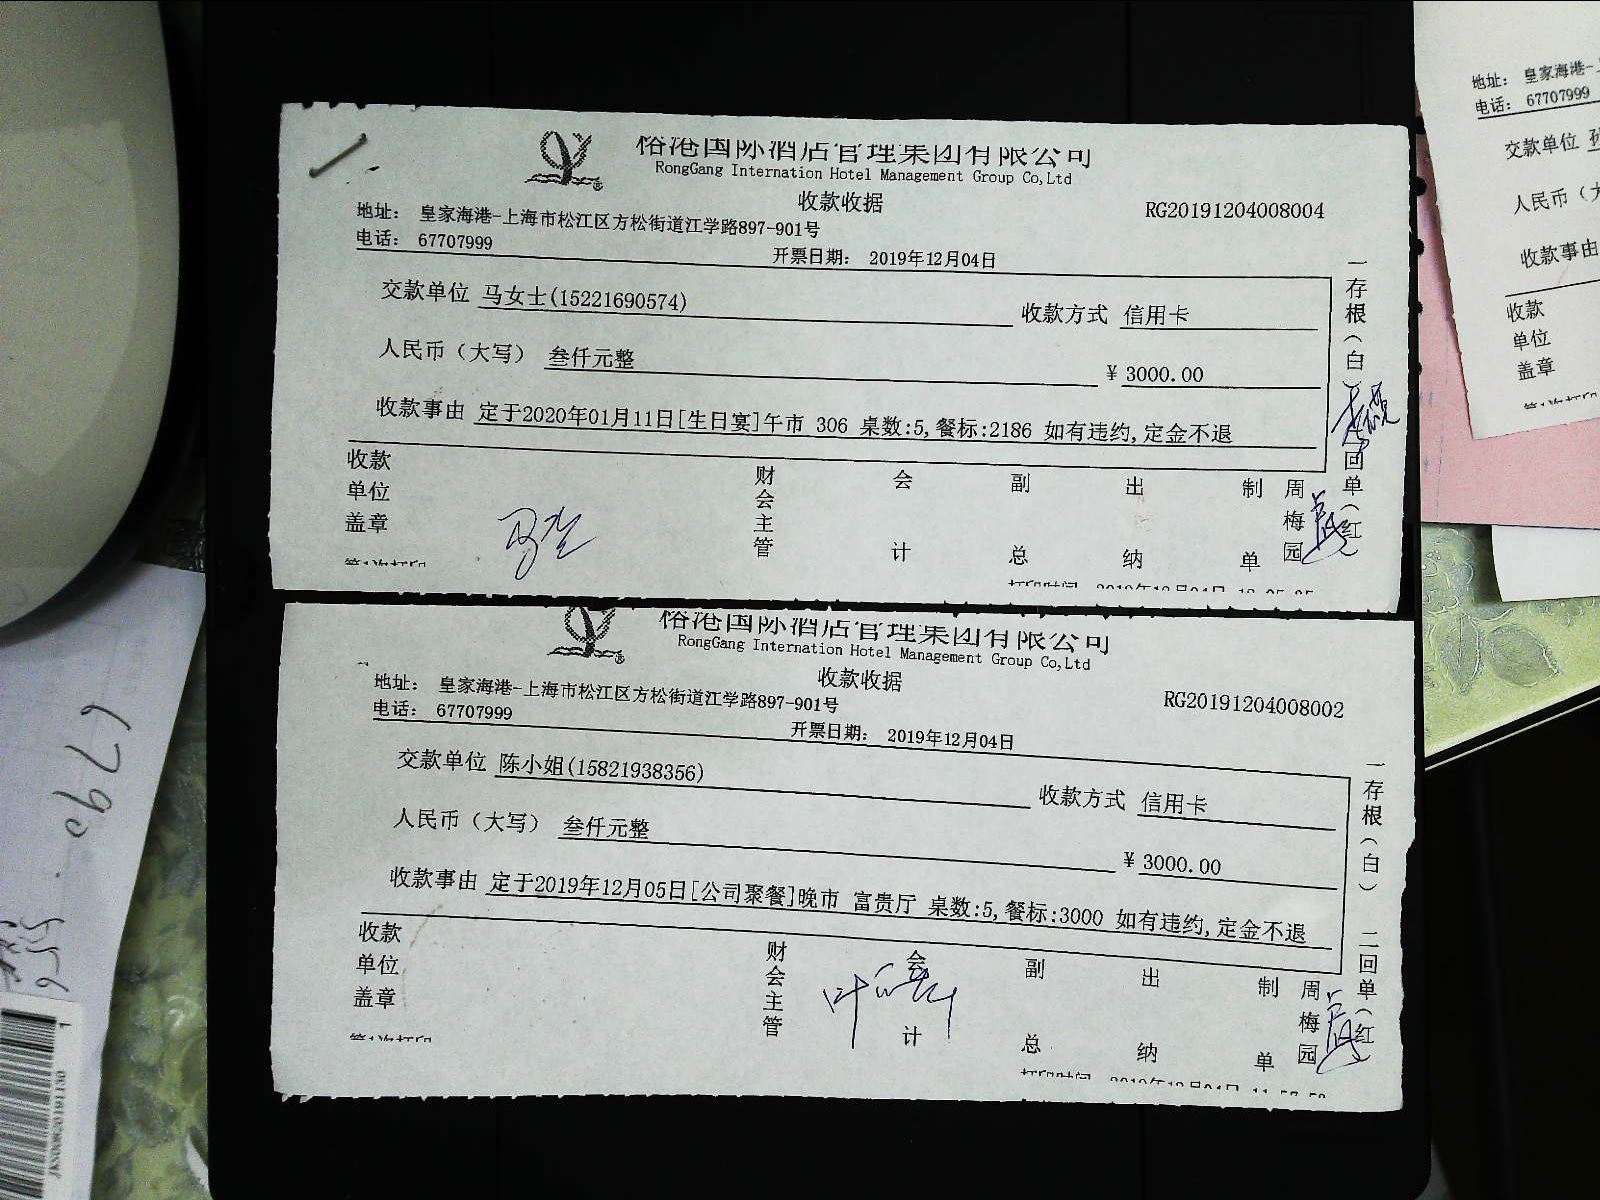 榕港国际酒店管理集团有限公司
RongGang International Hotel Management Group Co,Ltd
收款收据
RG20191204008004
地址： 皇家海港-上海市松江区方松街道江学路897-901号
电话： 67707999
开票日期： 2019年12月04日
交款单位 马女士(15221690574)
收款方式 信用卡
人民币（大写） 叁仟元整
¥ 3000.00
收款事由 定于2020年01月11日[生日宴]午市 306 桌数:5,餐标:2186 如有违约,定金不退
收款单位盖章
财会主管
会计
副总
出纳
制单
周梅园
一存根（白）
回单（红
第1次打印
榕港国际酒店管理集团有限公司
RongGang International Hotel Management Group Co,Ltd
收款收据
RG20191204008002
地址： 皇家海港-上海市松江区方松街道江学路897-901号
电话： 67707999
开票日期： 2019年12月04日
交款单位 陈小姐(15821938356)
收款方式 信用卡
人民币（大写） 叁仟元整
¥ 3000.00
收款事由 定于2019年12月05日[公司聚餐]晚市 富贵厅 桌数:5,餐标:3000 如有违约,定金不退
收款单位盖章
财会主管
会计
副总
出纳
制单
周梅园
一存根（白）
二回单（红
第1次打印
地址： 皇家海港-
电话： 67707999
交款单位
人民币（
收款事由
收款
单位
盖章
6790
556